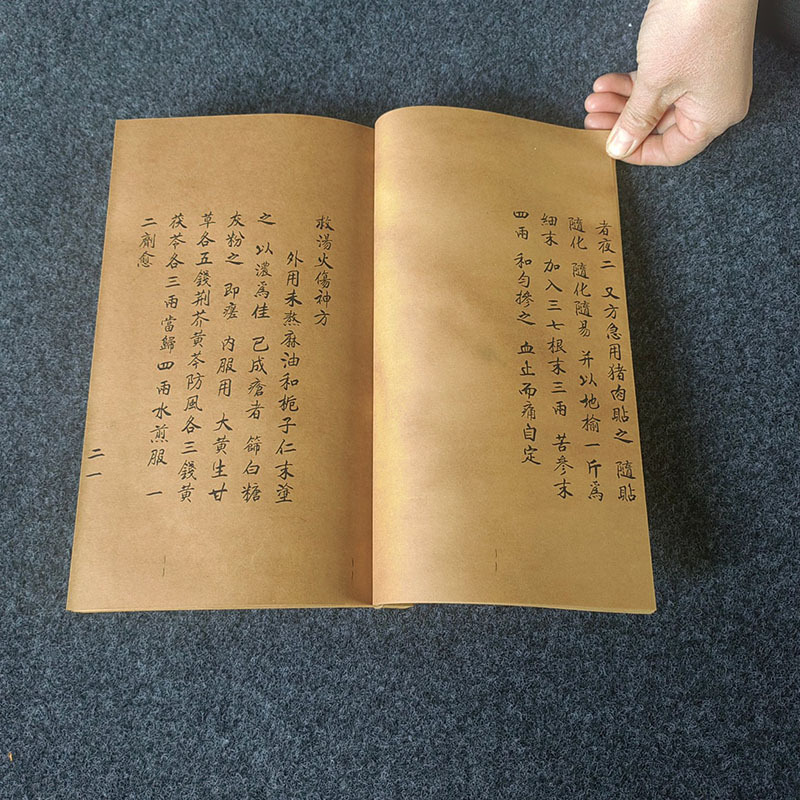 者夜二 又方急用猪肉貼之 隨貼
隨化 隨化隨易 并以地榆一斤爲
細末 加入三七根末三兩 苦參末
四兩 和勻摻之 血止而痛自定
救湯火傷神方
外用未熬麻油和梔子仁末塗
之 以濃爲佳 已成瘡者 篩白糖
灰粉之 即瘥 内服用 大黃生甘
草各五錢荆芥黃芩防風各三錢黃
茯苓各三兩當歸四兩水煎服 一
二劑愈
二一